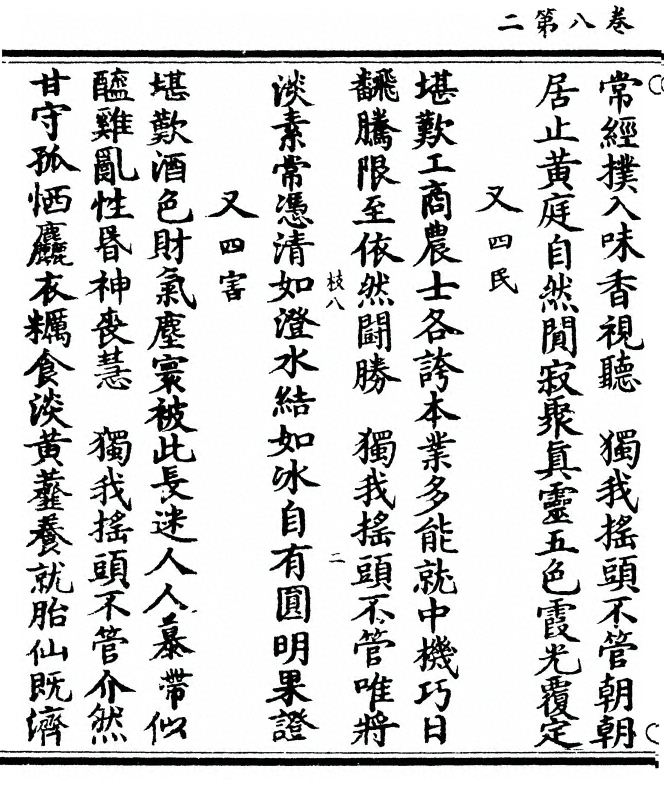 卷八第二
常經撲入味香視聽　獨我搖頭不管朝朝
居止黃庭自然閴寂聚真靈五色霞光覆定
又四民
堪歎工商農士各誇本業多能就中機巧日
飜騰限至依然鬪勝　獨我搖頭不管唯將
枝八
二
淡素常憑清如澄水結如冰自有圓明果證
又四害
堪歎酒色財氣塵寰被此長迷人人慕帶似
醯雞亂性昬神喪慧　獨我搖頭不管介然
甘守孤恓麤衣糲食淡黃虀養就胎仙旣濟